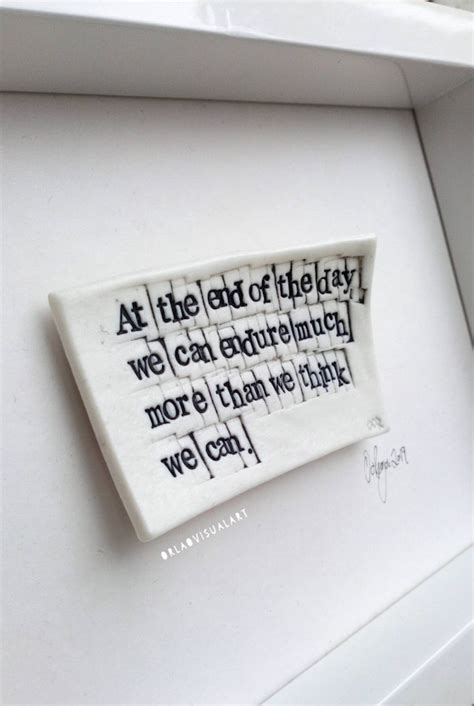 At the end of the day
we can endure much
more than we think
we can.
ORLAOVISUALART